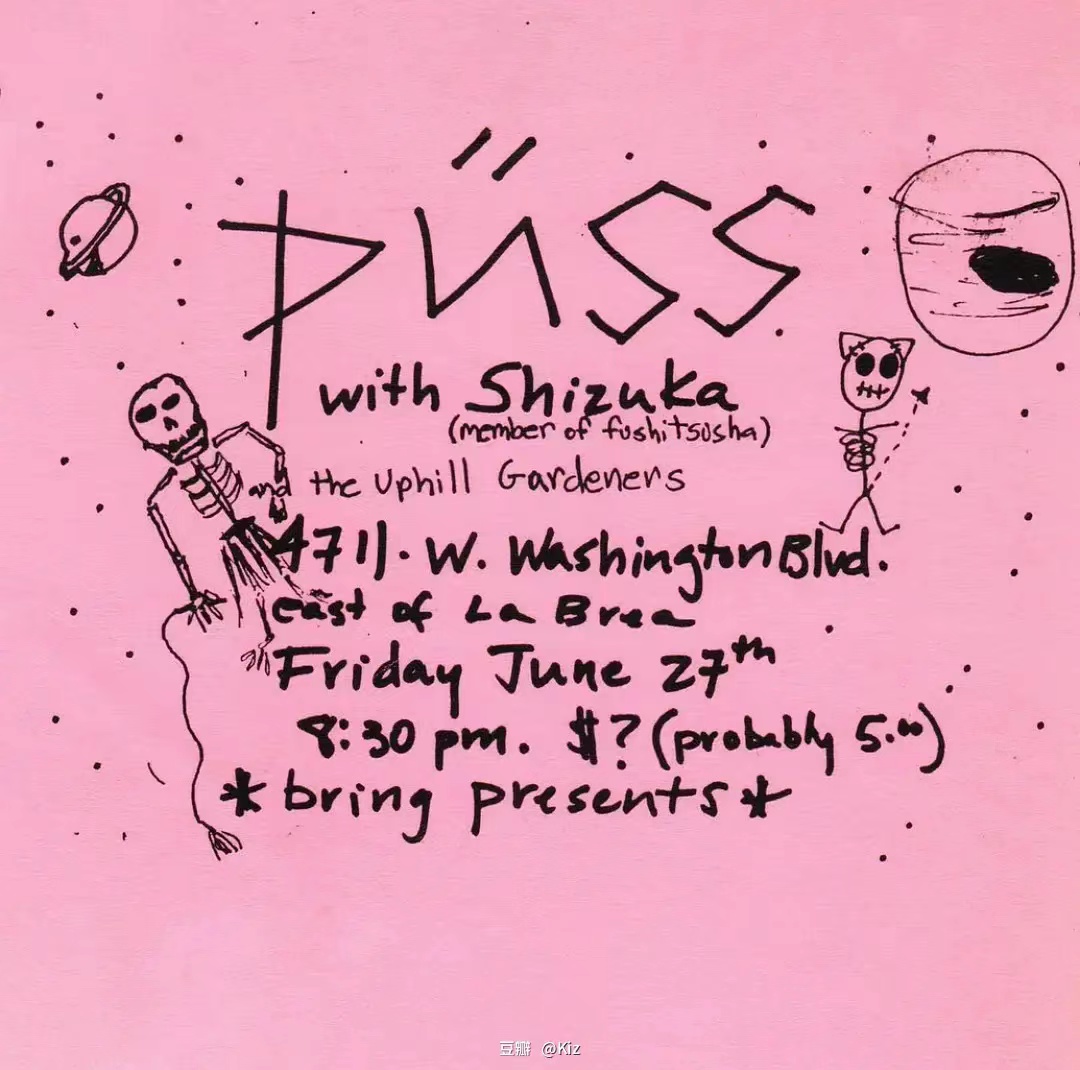 püss
with Shizuka
(member of fushitsusha)
and the Uphill Gardeners
4711. W. Washington Blvd.
east of La Brea
Friday June 27th
8:30 pm. $? (probably 5.00)
*bring presents*
豆瓣 @Kiz